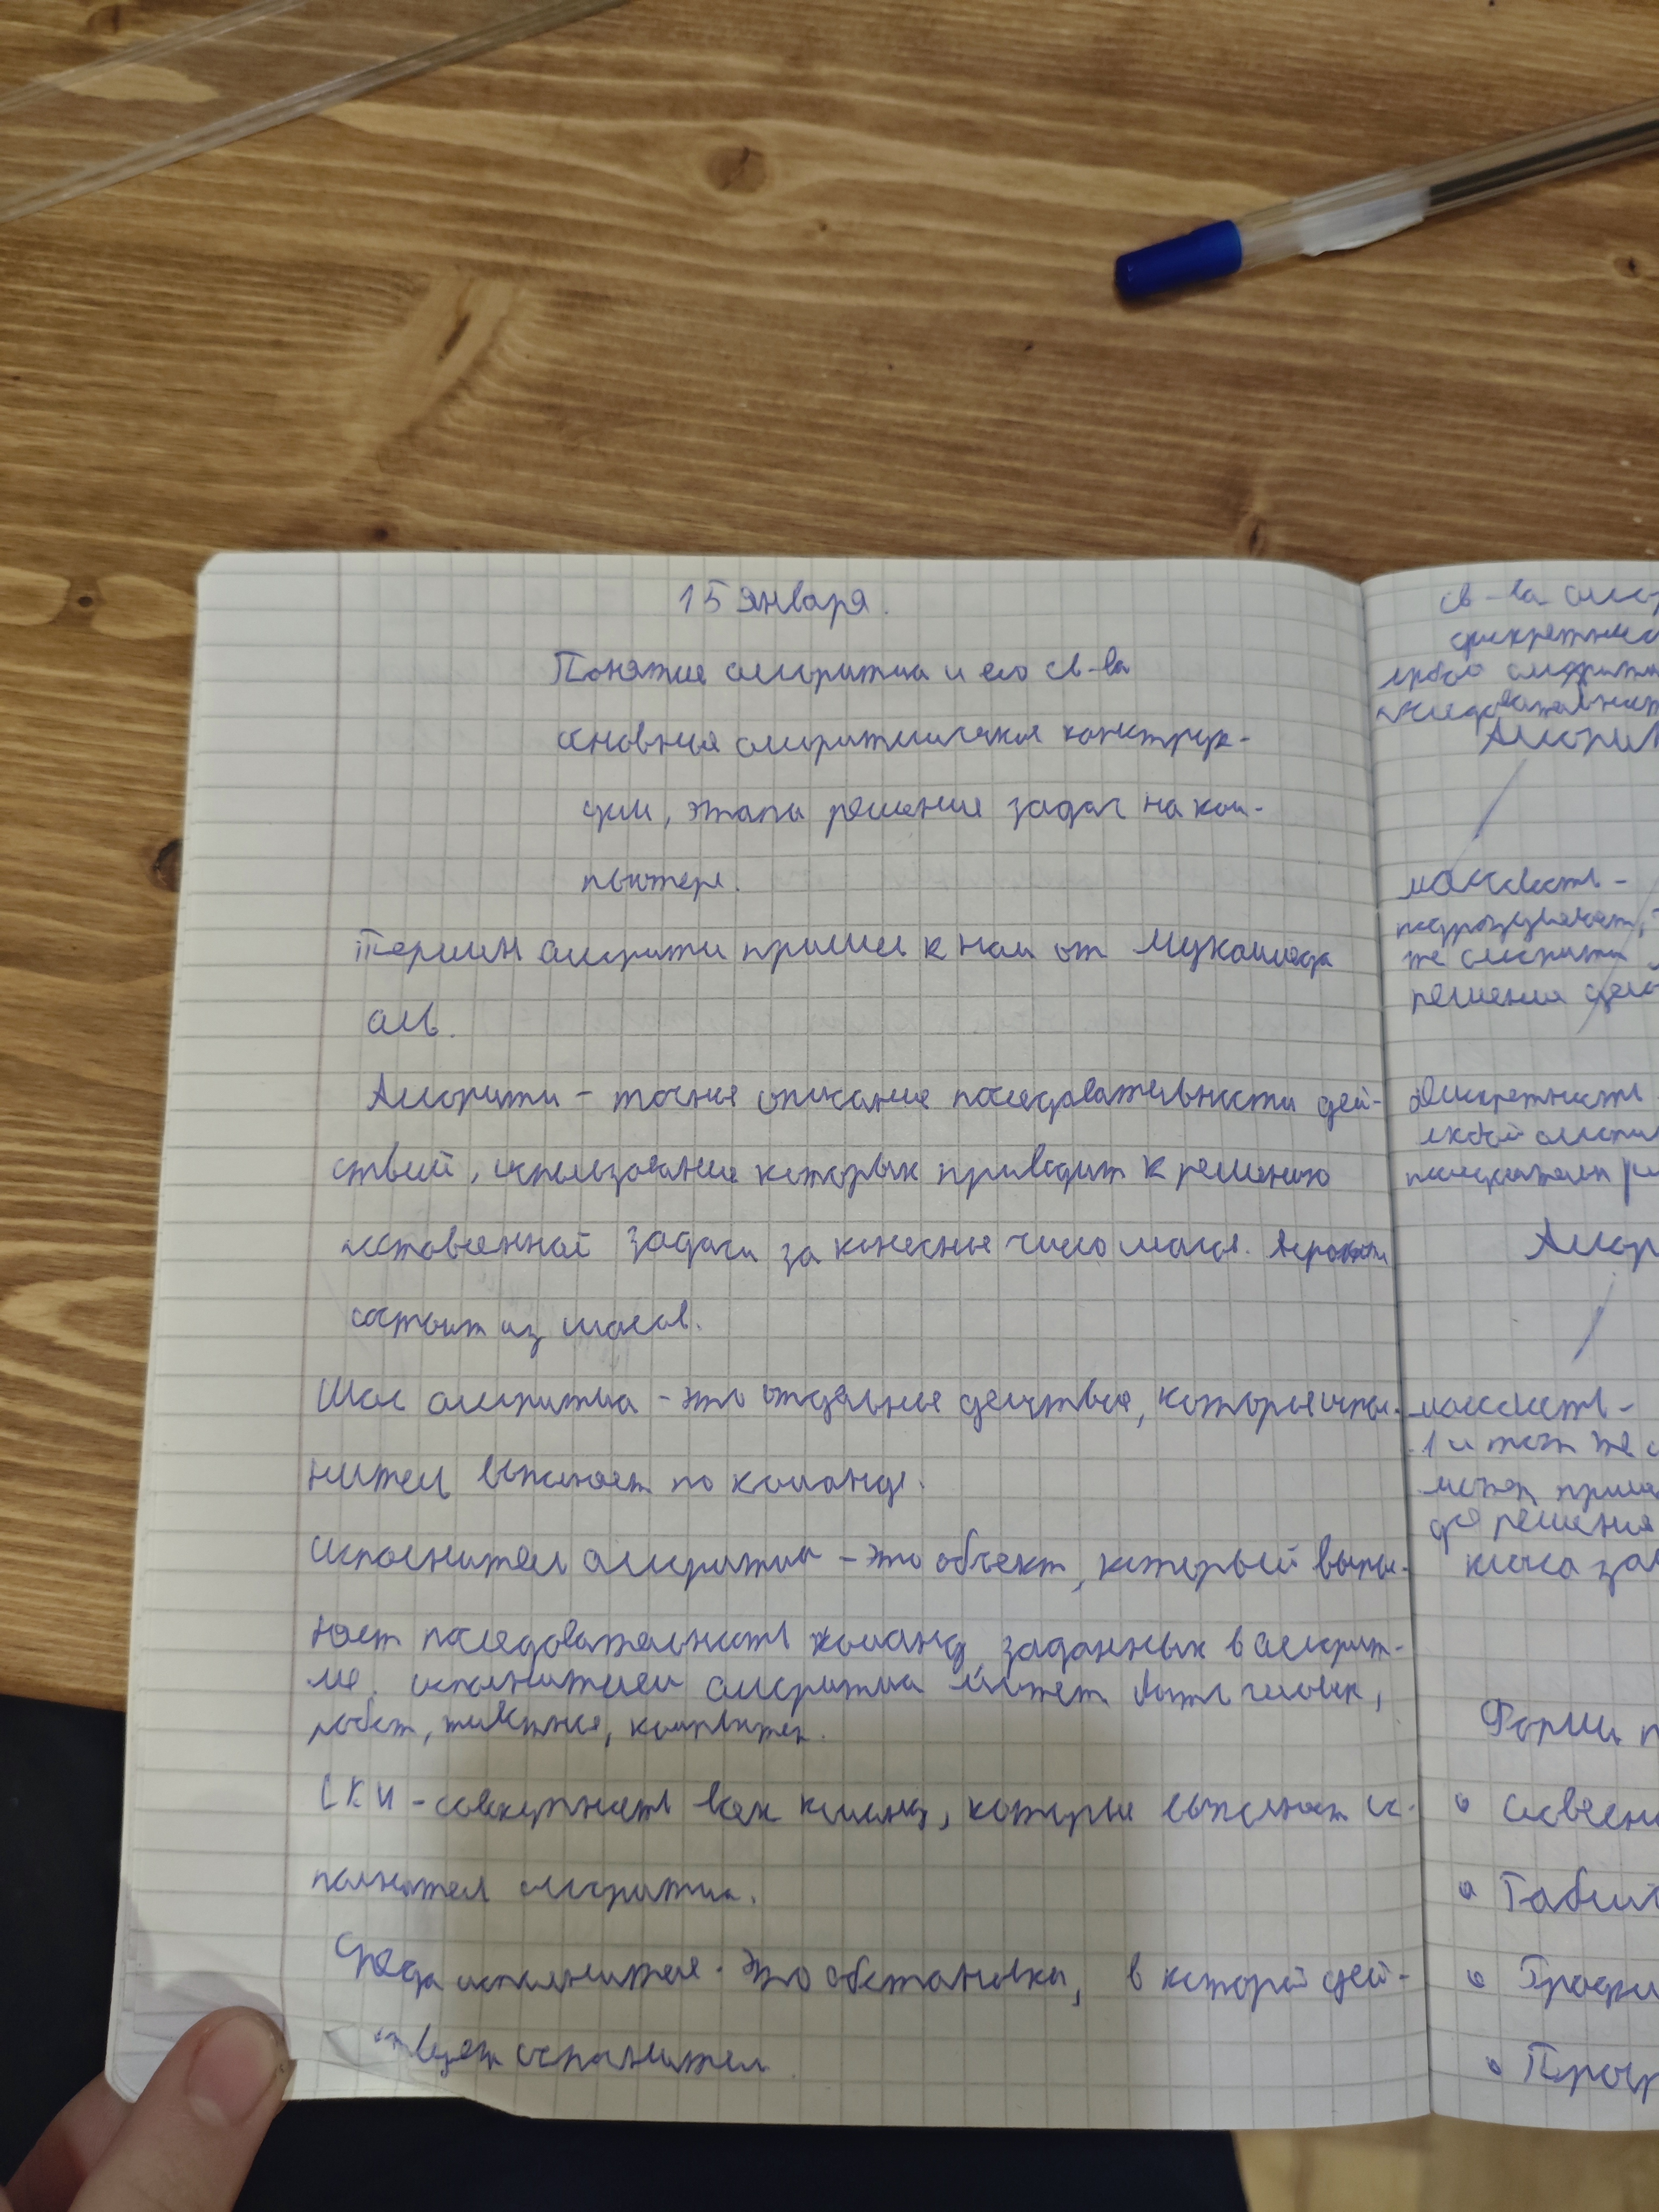 15 января.
Понятие алгоритма и его св-ва
основные алгоритмические конструк-
ции, этапы решение задач на ком-
пьютере.
Термин алгоритм пришел к нам от Мухаммеда
аль.
Алгоритм - точное описание последовательности дей-
ствий, использование которых приводит к решению
поставленной задачи за конечное число шагов.
состоит из шагов.
Шаг алгоритма - это отдельное действие, которые испол-
нитель выполняет по команде.
исполнитель алгоритма - это объект, который выпол-
няет последовательность команд, заданных в алгорит-
ме. исполнителем алгоритма может быть человек,
робот, животное, компьютер.
СКИ - совокупность всех команд, которые выполняет ис-
полнитель алгоритма.
Среда исполнителя - это обстановка, в которой дей-
ствует исполнитель
св-ва
любой
Алгорит
же алгоритм
решения
дискретность
любой
1 и тот же
может
решения
класса
Формы п
• словесн
• Табли
• Графи
• Прогр